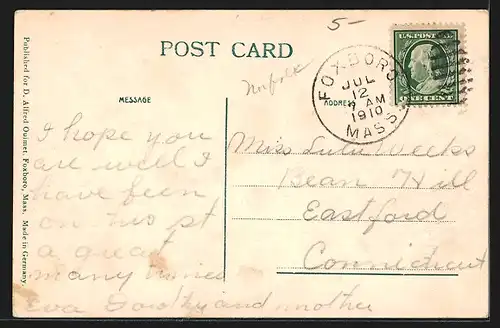 5-
POST CARD
U.S. POSTAGE
ONE CENT
FOXBORO
JUL
12
7 AM
1910
MASS.
Norfolk
MESSAGE
ADDRESS
I hope you
are well I
have been
on
a great
many
Eva Dorothy and mother
Miss Lulu Weeks
Bean Hill
Eastford
Connecticut
Published for D. Alfred Ouimet, Foxboro, Mass. Made in Germany.